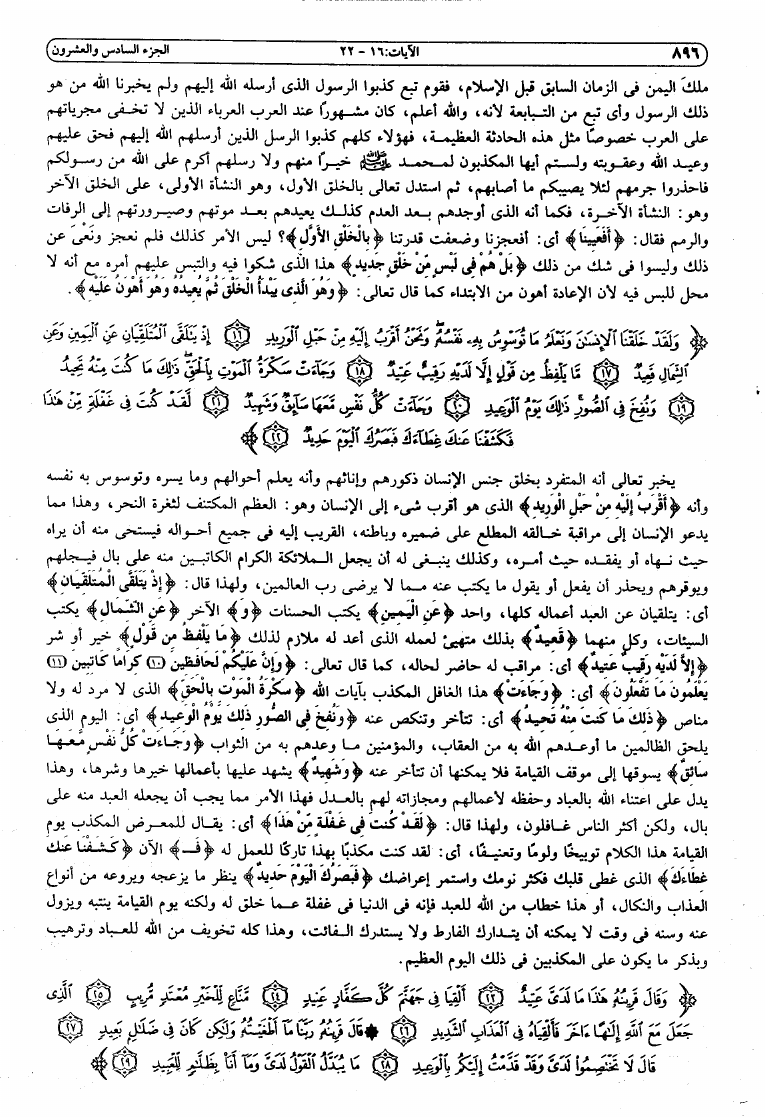 ٨٩٦ الآيات: ١٦ - ٢٢ الجزء السادس والعشرون
ملك اليمن فى الزمان السابق قبل الإسلام، فقوم تبع كذبوا الرسول الذى أرسله الله إليهم ولم يخبرنا الله من هو
ذلك الرسول وأى تبع من التبابعة لأنه، والله أعلم، كان مشهورًا عند العرب العرباء الذين لا تخفى مجرياتهم
على العرب خصوصًا مثل هذه الحادثة العظيمة، فهؤلاء كلهم كذبوا الرسل الذين أرسلهم الله إليهم فحق عليهم
وعيد الله وعقوبته ولستم أيها المكذبون لمحمد ﷺ خيرًا منهم ولا رسلهم أكرم على الله من رسولكم
فاحذروا جرمهم لئلا يصيبكم ما أصابهم، ثم استدل تعالى بالخلق الأول، وهو النشأة الأولى، على الخلق الآخر
وهو: النشأة الآخرة، فكما أنه الذى أوجدهم بعد العدم كذلك يعيدهم بعد موتهم وصيرورتهم إلى الرفات
والرمم فقال: ﴿أَفَعَيِينَا﴾ أى: أفعجزنا وضعفت قدرتنا ﴿بِالْخَلْقِ الأَوَّلِ﴾؟ ليس الأمر كذلك فلم نعجز ونَعْىَ عن
ذلك وليسوا فى شك من ذلك ﴿بَلْ هُمْ فِي لَبْسٍ مِّنْ خَلْقٍ جَدِيدٍ﴾ هذا الذى شكوا فيه والتبس عليهم أمره مع أنه لا
محل للبس فيه لأن الإعادة أهون من الابتداء كما قال تعالى: ﴿وَهُوَ الَّذِي يَبْدَأُ الْخَلْقَ ثُمَّ يُعِيدُهُ وَهُوَ أَهْوَنُ عَلَيْهِ﴾.
﴿وَلَقَدْ خَلَقْنَا ٱلْإِنسَٰنَ وَنَعْلَمُ مَا تُوَسْوِسُ بِهِۦ نَفْسُهُۥ وَنَحْنُ أَقْرَبُ إِلَيْهِ مِنْ حَبْلِ ٱلْوَرِيدِ ﴿١٦﴾ إِذْ يَتَلَقَّى ٱلْمُتَلَقِّيَانِ عَنِ ٱلْيَمِينِ وَعَنِ
ٱلشِّمَالِ قَعِيدٌ ﴿١٧﴾ مَّا يَلْفِظُ مِن قَوْلٍ إِلَّا لَدَيْهِ رَقِيبٌ عَتِيدٌ ﴿١٨﴾ وَجَآءَتْ سَكْرَةُ ٱلْمَوْتِ بِٱلْحَقِّ ذَٰلِكَ مَا كُنتَ مِنْهُ تَحِيدُ
﴿١٩﴾ وَنُفِخَ فِى ٱلصُّورِ ذَٰلِكَ يَوْمُ ٱلْوَعِيدِ ﴿٢٠﴾ وَجَآءَتْ كُلُّ نَفْسٍ مَّعَهَا سَآئِقٌ وَشَهِيدٌ ﴿٢١﴾ لَّقَدْ كُنتَ فِى غَفْلَةٍ مِّنْ هَٰذَا
فَكَشَفْنَا عَنكَ غِطَآءَكَ فَبَصَرُكَ ٱلْيَوْمَ حَدِيدٌ ﴿٢٢﴾﴾
يخبر تعالى أنه المتفرد بخلق جنس الإنسان ذكورهم وإناثهم وأنه يعلم أحوالهم وما يسره وتوسوس به نفسه
وأنه ﴿أَقْرَبُ إِلَيْهِ مِنْ حَبْلِ الْوَرِيدِ﴾ الذى هو أقرب شىء إلى الإنسان وهو: العظم المكتنف لثغرة النحر، وهذا مما
يدعو الإنسان إلى مراقبة خالقه المطلع على ضميره وباطنه، القريب إليه فى جميع أحواله فيستحى منه أن يراه
حيث نهاه أو يفقده حيث أمره، وكذلك ينبغى له أن يجعل الملائكة الكرام الكاتبين منه على بال فيجلهم
ويوقرهم ويحذر أن يفعل أو يقول ما يكتب عنه مما لا يرضى رب العالمين، ولهذا قال: ﴿إِذْ يَتَلَقَّى الْمُتَلَقِّيَانِ﴾
أى: يتلقيان عن العبد أعماله كلها، واحد ﴿عَنِ الْيَمِينِ﴾ يكتب الحسنات ﴿وَ﴾ الآخر ﴿عَنِ الشِّمَالِ﴾ يكتب
السيئات، وكل منهما ﴿قَعِيدٌ﴾ بذلك متهيئ لعمله الذى أعد له ملازم لذلك ﴿مَا يَلْفِظُ مِن قَوْلٍ﴾ خير أو شر
﴿إِلاَّ لَدَيْهِ رَقِيبٌ عَتِيدٌ﴾ أى: مراقب له حاضر لحاله، كما قال تعالى: ﴿وَإِنَّ عَلَيْكُمْ لَحَافِظِينَ ﴿١٠﴾ كِرَامًا كَاتِبِينَ ﴿١١﴾
يَعْلَمُونَ مَا تَفْعَلُونَ﴾ أى: ﴿وَجَاءَتْ﴾ هذا الغافل المكذب بآيات الله ﴿سَكْرَةُ الْمَوْتِ بِالْحَقِّ﴾ الذى لا مرد له ولا
مناص ﴿ذَلِكَ مَا كُنتَ مِنْهُ تَحِيدُ﴾ أى: تتأخر وتنكص عنه ﴿وَنُفِخَ فِي الصُّورِ ذَلِكَ يَوْمُ الْوَعِيدِ﴾ أى: اليوم الذى
يلحق الظالمين ما أوعدهم الله به من العقاب، والمؤمنين ما وعدهم به من الثواب ﴿وَجَاءَتْ كُلُّ نَفْسٍ مَّعَهَا
سَائِقٌ﴾ يسوقها إلى موقف القيامة فلا يمكنها أن تتأخر عنه ﴿وَشَهِيدٌ﴾ يشهد عليها بأعمالها خيرها وشرها، وهذا
يدل على اعتناء الله بالعباد وحفظه لأعمالهم ومجازاته لهم بالعدل فهذا الأمر مما يجب أن يجعله العبد منه على
بال، ولكن أكثر الناس غافلون، ولهذا قال: ﴿لَقَدْ كُنتَ فِي غَفْلَةٍ مِّنْ هَذَا﴾ أى: يقال للمعرض المكذب يوم
القيامة هذا الكلام توبيخًا ولومًا وتعنيفًا، أى: لقد كنت مكذبًا بهذا تاركًا للعمل له ﴿فَـ﴾ الآن ﴿كَشَفْنَا عَنكَ
غِطَاءَكَ﴾ الذى غطى قلبك فكثر نومك واستمر إعراضك ﴿فَبَصَرُكَ الْيَوْمَ حَدِيدٌ﴾ ينظر ما يزعجه ويروعه من أنواع
العذاب والنكال، أو هذا خطاب من الله للعبد فإنه فى الدنيا فى غفلة عما خلق له ولكنه يوم القيامة ينتبه ويزول
عنه وسنه فى وقت لا يمكنه أن يتدارك الفارط ولا يستدرك الفائت، وهذا كله تخويف من الله للعباد وترهيب
وبذكر ما يكون على المكذبين فى ذلك اليوم العظيم.
﴿وَقَالَ قَرِينُهُۥ هَٰذَا مَا لَدَىَّ عَتِيدٌ ﴿٢٣﴾ أَلْقِيَا فِى جَهَنَّمَ كُلَّ كَفَّارٍ عَنِيدٍ ﴿٢٤﴾ مَّنَّاعٍ لِّلْخَيْرِ مُعْتَدٍ مُّرِيبٍ ﴿٢٥﴾ ٱلَّذِى
جَعَلَ مَعَ ٱللَّهِ إِلَٰهًا ءَاخَرَ فَأَلْقِيَاهُ فِى ٱلْعَذَابِ ٱلشَّدِيدِ ﴿٢٦﴾ ۞ قَالَ قَرِينُهُۥ رَبَّنَا مَآ أَطْغَيْتُهُۥ وَلَٰكِن كَانَ فِى ضَلَٰلٍۭ بَعِيدٍ ﴿٢٧﴾
قَالَ لَا تَخْتَصِمُوا۟ لَدَىَّ وَقَدْ قَدَّمْتُ إِلَيْكُم بِٱلْوَعِيدِ ﴿٢٨﴾ مَا يُبَدَّلُ ٱلْقَوْلُ لَدَىَّ وَمَآ أَنَا۠ بِظَلَّٰمٍ لِّلْعَبِيدِ ﴿٢٩﴾﴾